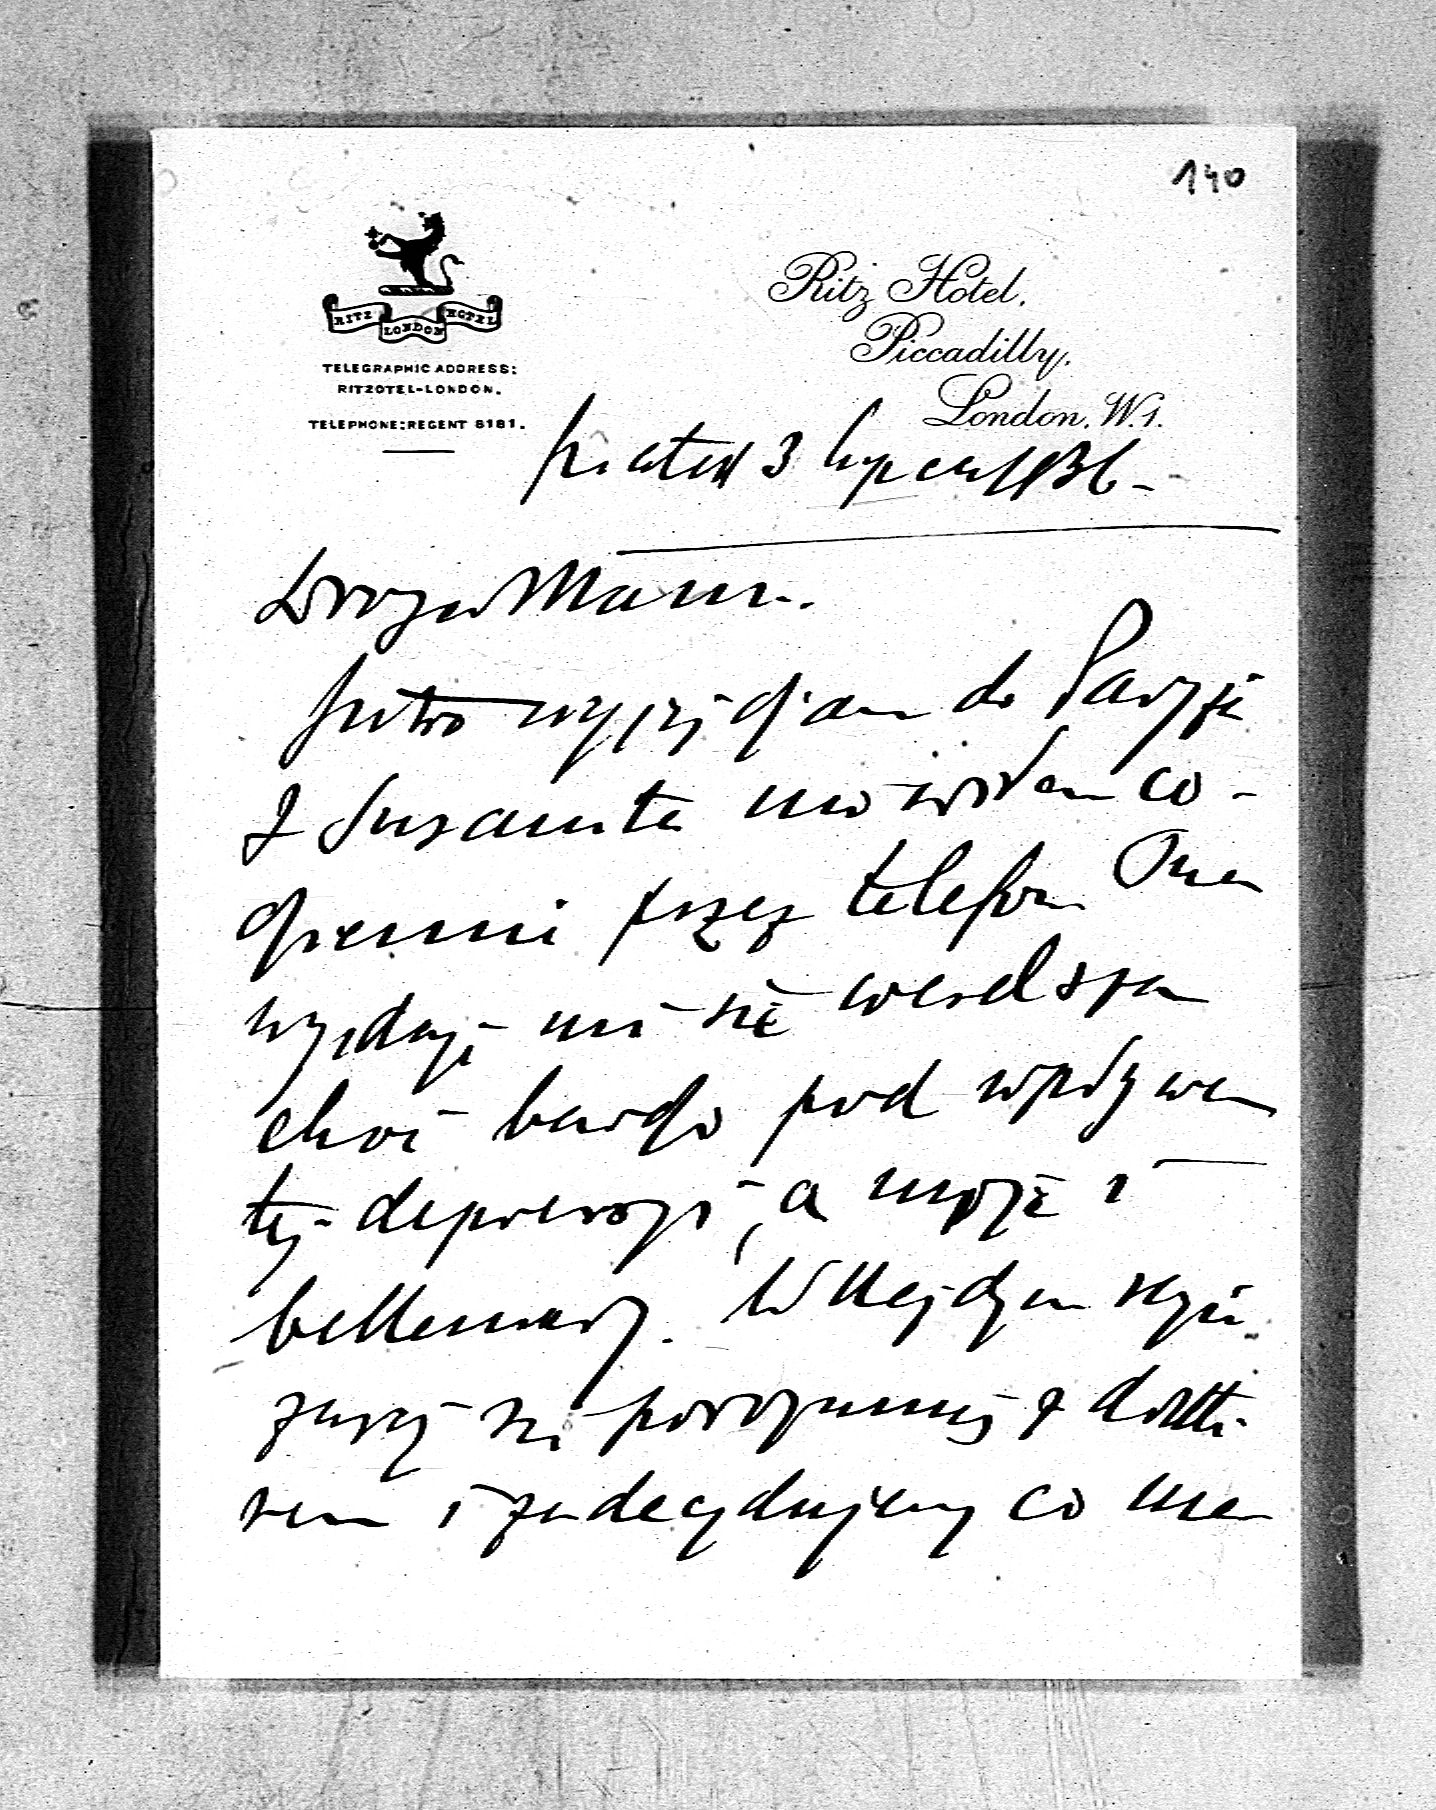 140
RITZ LONDON HOTEL
TELEGRAPHIC ADDRESS:
RITZOTEL-LONDON.
TELEPHONE: REGENT 8181.
Ritz Hotel,
Piccadilly,
London, W.1.
piątek 3 lipca 1936 -
Droga Mam.
Jutro wyjeżdżam do Paryża
Z Susanne mówiłem co-
dziennie przez telefon Ona
wydaje mi się weselsza
choć bardzo pod wpływem
tej depresji, a może i
. W każdym razie
zaraz się porozumię z dokto-
rem i zadecydujemy co ma